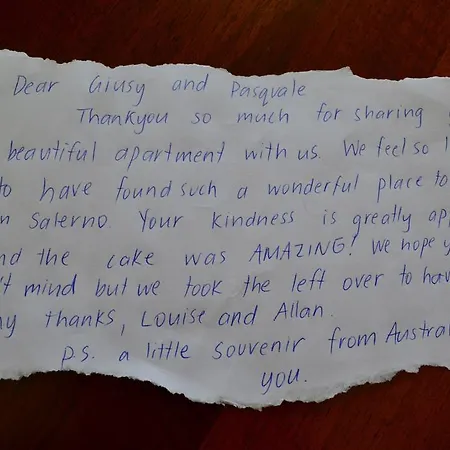 Dear Giusy and Pasquale
Thankyou so much for sharing
beautiful apartment with us. We feel so
to have found such a wonderful place to
Salerno. Your kindness is greatly
the cake was AMAZING! We hope
mind but we took the left over to
thanks, Louise and Allan.
p.s. a little souvenir from
you.